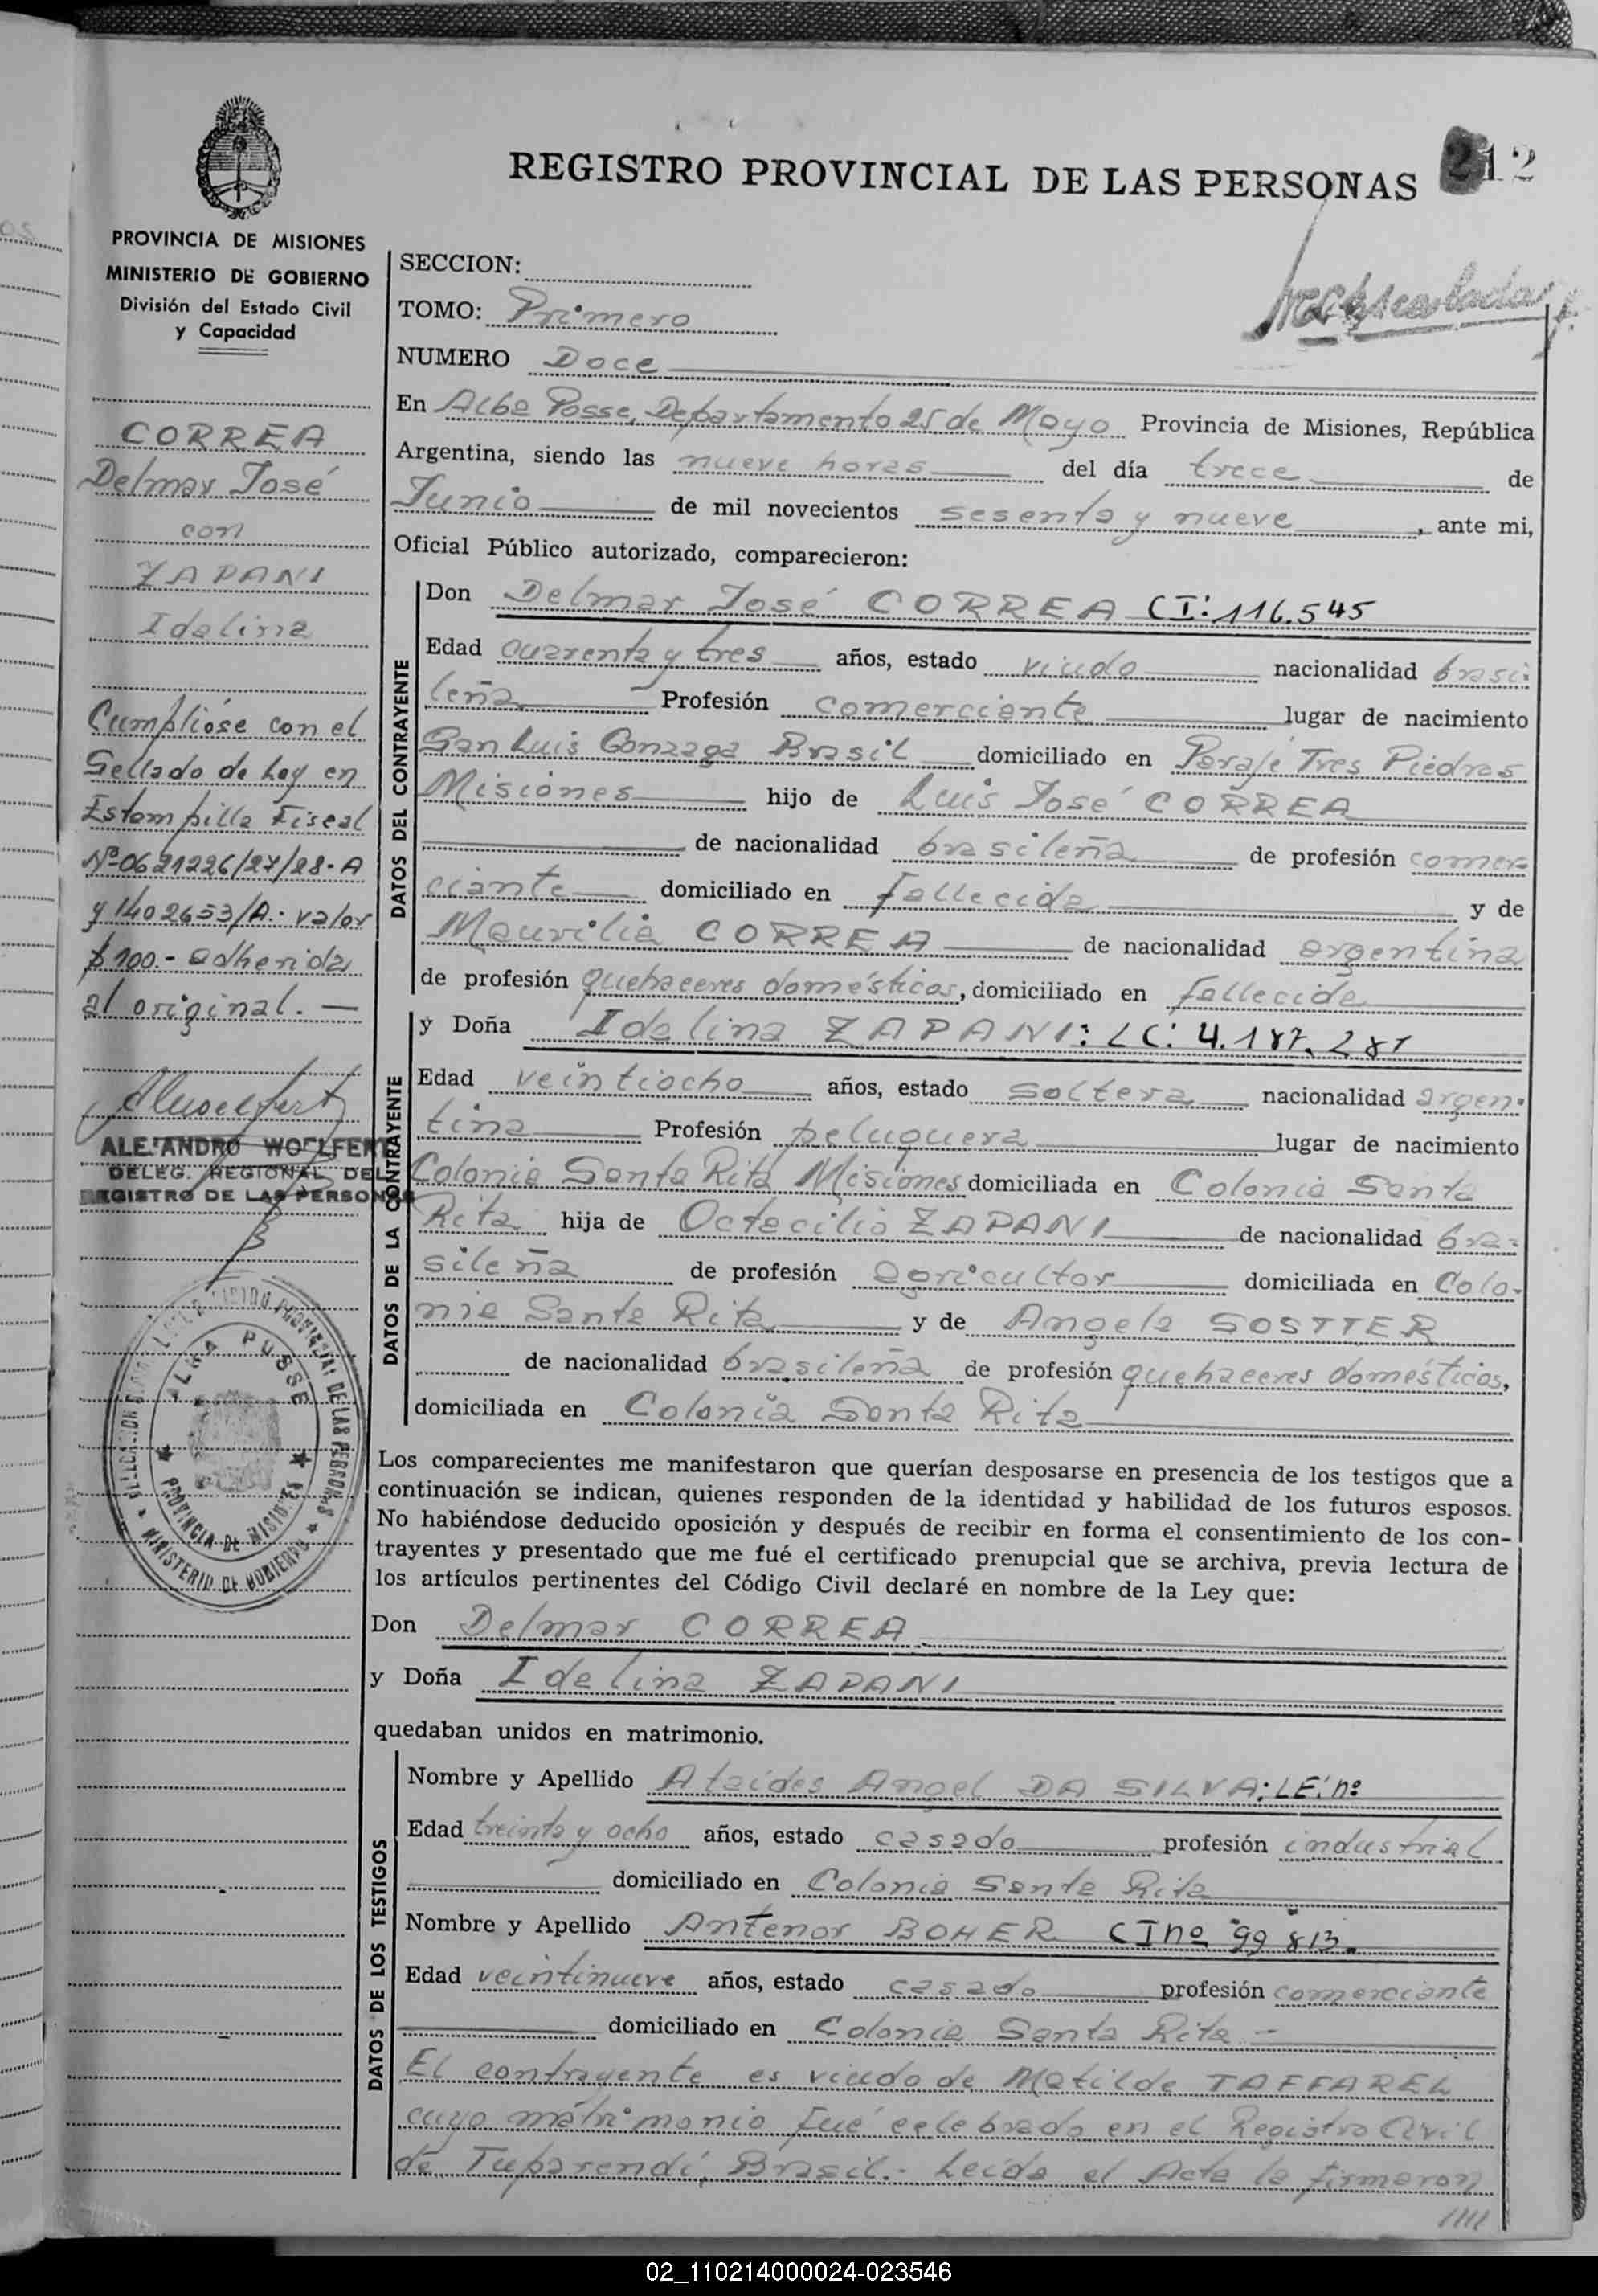 REGISTRO PROVINCIAL DE LAS PERSONAS
212
PROVINCIA DE MISIONES
MINISTERIO DE GOBIERNO
División del Estado Civil
y Capacidad
CORREA
Delmar José
con
ZAPANI
Idelina
Cumplióse con el
Sellado de Ley en
Estampilla Fiscal
Nº 0621226/27/28-A
y 1402653/A.- valor
$ 100.- adherida
al original. —
ALEJANDRO WOELFERT
DELEG. REGIONAL DEL
REGISTRO DE LAS PERSONAS
ALBA POSSE
PROVINCIA DE MISIONES
REGISTRO PROVINCIAL DE LAS PERSONAS
MINISTERIO DE GOBIERNO
SECCION:
TOMO: Primero
NUMERO Doce
En Alba Posse, Departamento 25 de Mayo Provincia de Misiones, República
Argentina, siendo las nueve horas del día trece de
Junio de mil novecientos sesenta y nueve, ante mi,
Oficial Público autorizado, comparecieron:
DATOS DEL CONTRAYENTE
Don Delmar José CORREA CI: 116.545
Edad cuarenta y tres años, estado viudo nacionalidad brasi
leña Profesión comerciante lugar de nacimiento
San Luis Gonzaga Brasil domiciliado en Paraje Tres Piedras
Misiones hijo de Luis José CORREA
de nacionalidad brasileña de profesión comer
ciante domiciliado en fallecido y de
Maurilia CORREA de nacionalidad argentina
de profesión quehaceres domésticos, domiciliado en fallecida
DATOS DE LA CONTRAYENTE
y Doña Idelina ZAPANI: LC: 4.187.281
Edad veintiocho años, estado soltera nacionalidad argen-
tina Profesión peluquera lugar de nacimiento
Colonia Santa Rita Misiones domiciliada en Colonia Santa
Rita hija de Octacilio ZAPANI de nacionalidad bra-
sileña de profesión agricultor domiciliada en Colo-
nia Santa Rita y de Angela SOSTTER
de nacionalidad brasileña de profesión quehaceres domésticos,
domiciliada en Colonia Santa Rita
Los comparecientes me manifestaron que querían desposarse en presencia de los testigos que a
continuación se indican, quienes responden de la identidad y habilidad de los futuros esposos.
No habiéndose deducido oposición y después de recibir en forma el consentimiento de los con-
trayentes y presentado que me fué el certificado prenupcial que se archiva, previa lectura de
los artículos pertinentes del Código Civil declaré en nombre de la Ley que:
Don Delmar CORREA
y Doña Idelina ZAPANI
quedaban unidos en matrimonio.
DATOS DE LOS TESTIGOS
Nombre y Apellido Ataides Angel DA SILVA: LE: nº
Edad treinta y ocho años, estado casado profesión industrial
domiciliado en Colonia Santa Rita
Nombre y Apellido Antenor BOHER CI nº 99.813.
Edad veintinueve años, estado casado profesión comerciante
domiciliado en Colonia Santa Rita -
El contrayente es viudo de Matilde TAFFAREL
cuyo matrimonio fué celebrado en el Registro Civil
de Tuparendí, Brasil.- Leída el Acta la firmaron
////
02_110214000024-023546